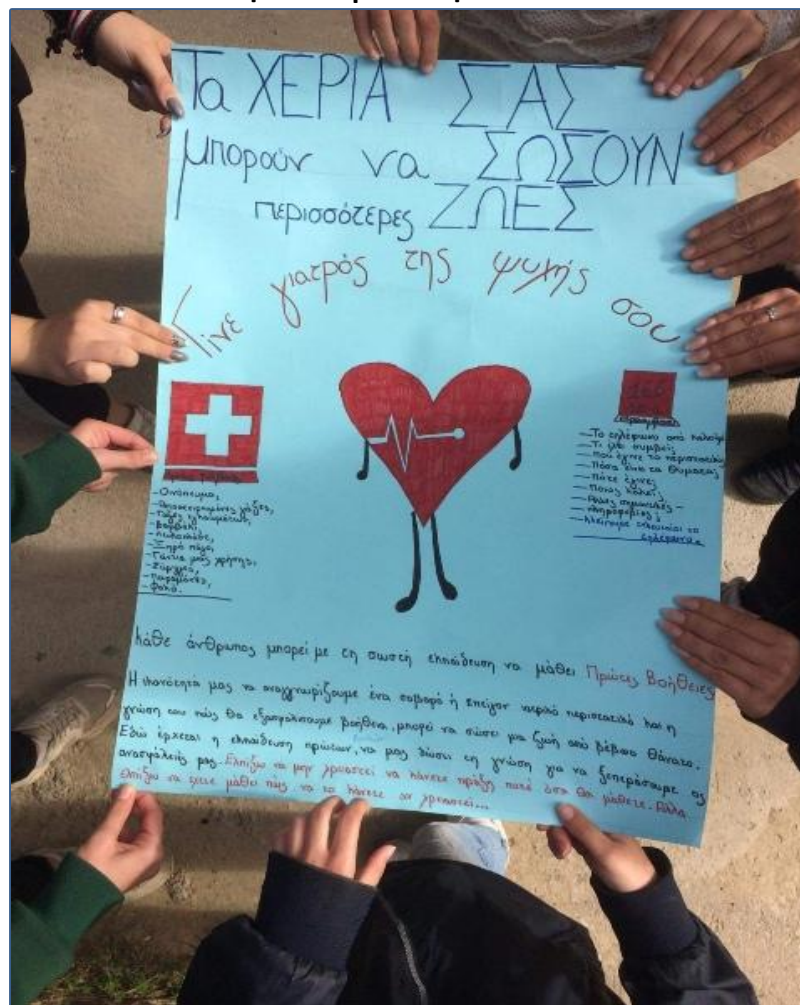 Τα ΧΕΡΙΑ ΣΑΣ
μπορούν να ΣΩΣΟΥΝ
περισσότερες ΖΩΕΣ
Γίνε γιατρός της ψυχής σου
-Οινόπνευμα,
-Αποστειρωμένες γάζες,
-βαμβάκι,
-Ξηρό πάγο,
-Γάντια μας χρήσης,
-Σύριγγες,
-παραμάνες,
-φακό.
-Το τηλέφωνο από
-Τι συμβεί;
-Που έγινε το περιστατικό;
-Πόσα είναι τα θύματα;
-Πότε έγινε;
-Ποιος καλεί;
-Άλλες σημαντικές-
-πληροφορίες;
το
τηλέφωνο.
κάθε άνθρωπος μπορεί με τη σωστή εκπαίδευση να μάθει Πρώτες Βοήθειες
Η ικανότητά μας να αναγνωρίζουμε ένα σοβαρό ή επείγον ιατρικό περιστατικό και η
γνώση του πώς θα εξασφαλίσουμε βοήθεια, μπορεί να σώσει μια ζωή από βέβαιο θάνατο.
Εδώ έρχεται η εκπαίδευση πρώτων, να μας δώσει τη γνώση για να ξεπεράσουμε τις
ανασφάλειές μας. Ελπίζω να μην χρειαστεί να κάνετε πράξη ποτέ όσα θα μάθετε. Αλλά
ελπίζω να έχετε μάθει πώς να το κάνετε αν χρειαστεί...